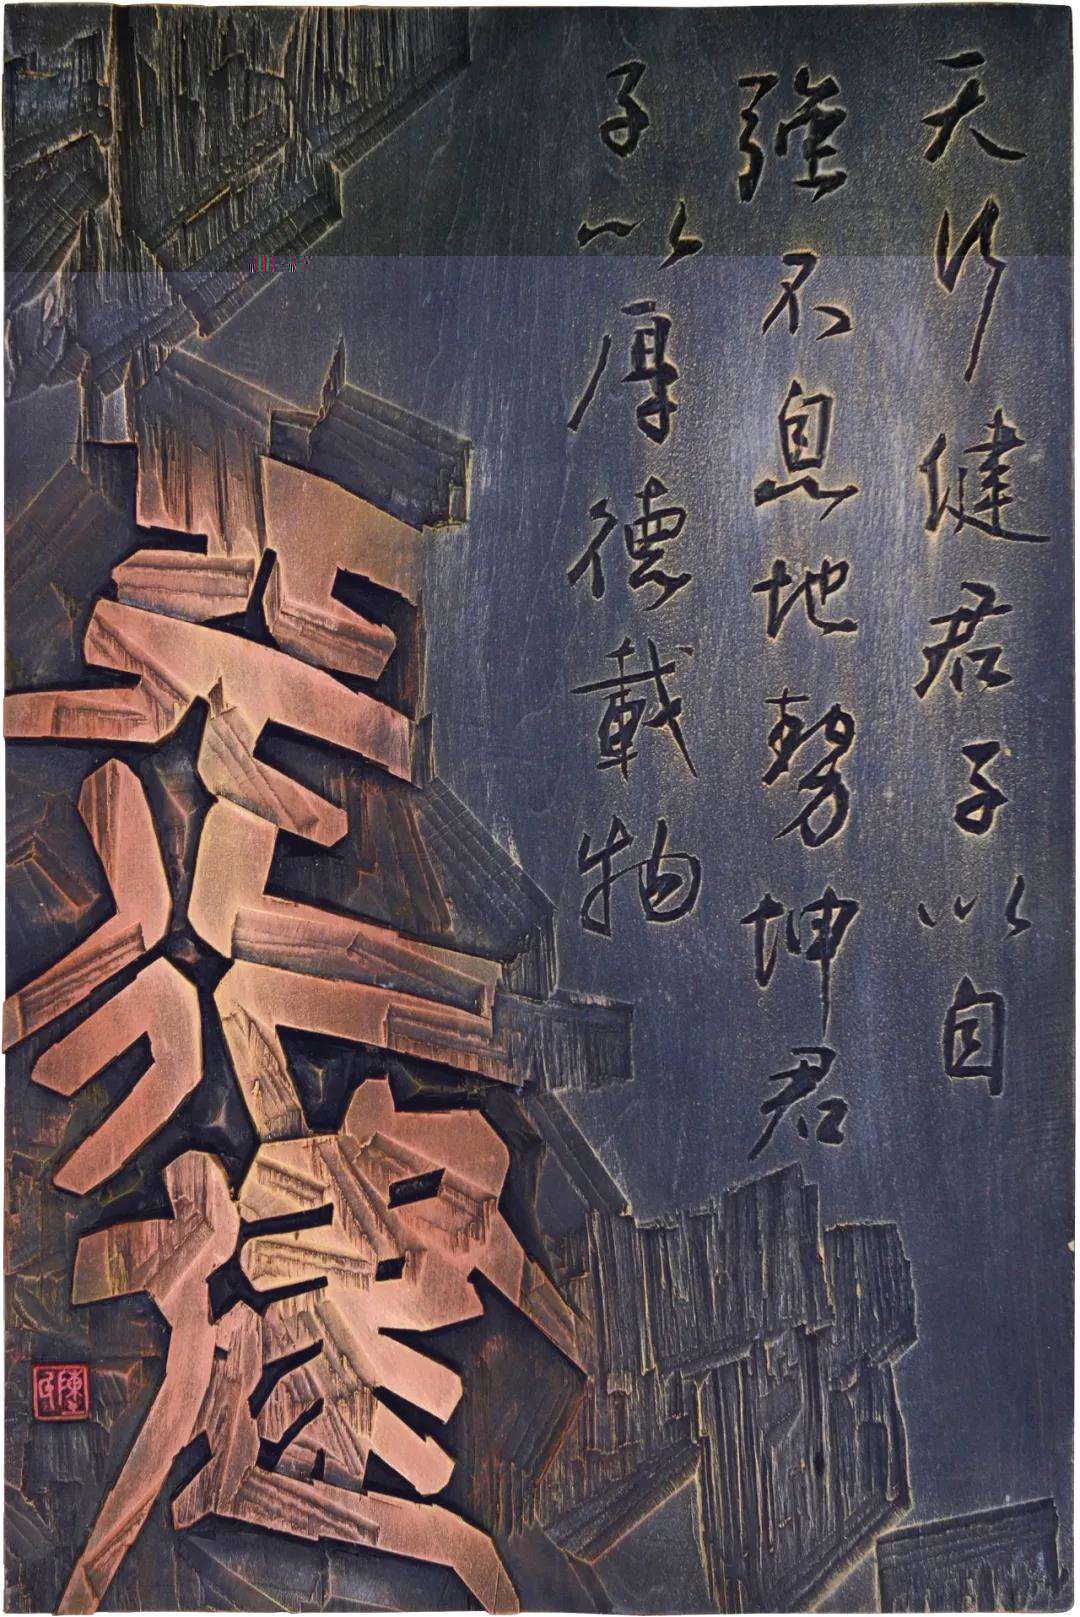 天行健君子以自
強不息地勢坤君
子以厚德載物
天行健